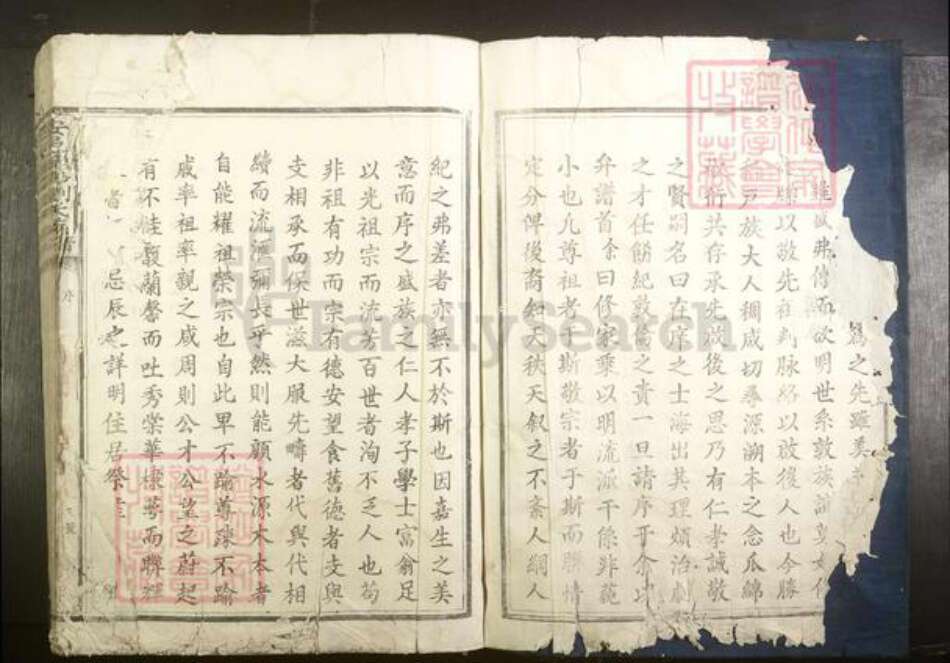 爲之先雖美
雖盛弗傳而欲明世系敦族誼
以敬先祖 脉絡以啟後人也今勝
户族大人稠咸切尋源溯本之念瓜綿
衍共存承先啟後之思乃有仁孝誠敬
之賢嗣名曰在序之士海出其理煩治劇
之才任飭紀敦 之責一旦請序于余以
弁譜首余曰修家乘以明流派干係非藐
小也凡尊祖者于斯敬宗者于斯而聯情
定分俾後裔知天秩天叙之不紊人綱人
紀之弗差者亦無不於斯也因嘉生之美
意而序之盛族之仁人孝子學士富翁足
以光祖宗而流芳百世者洵不乏人也苟
非祖有功而宗有德安望食舊德者支與
支相承而保世滋大服先疇者代與代相
續而流澤彌長乎然則能顧水源木本者
自能耀祖榮宗也自此卑不踰尊疎不踰
戚率祖率親之咸周則公才公望之蔚起
有不桂馥蘭馨而吐秀棠華棣萼而聯輝
者 忌辰之詳明住居祭
序
FamilySearch